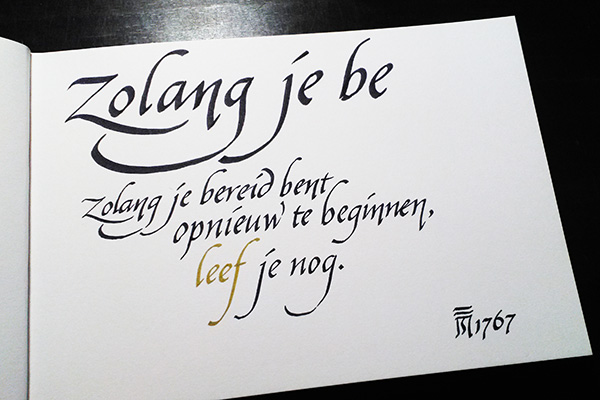 Zolang je be
Zolang je bereid bent
opnieuw te beginnen,
leef je nog.
1767